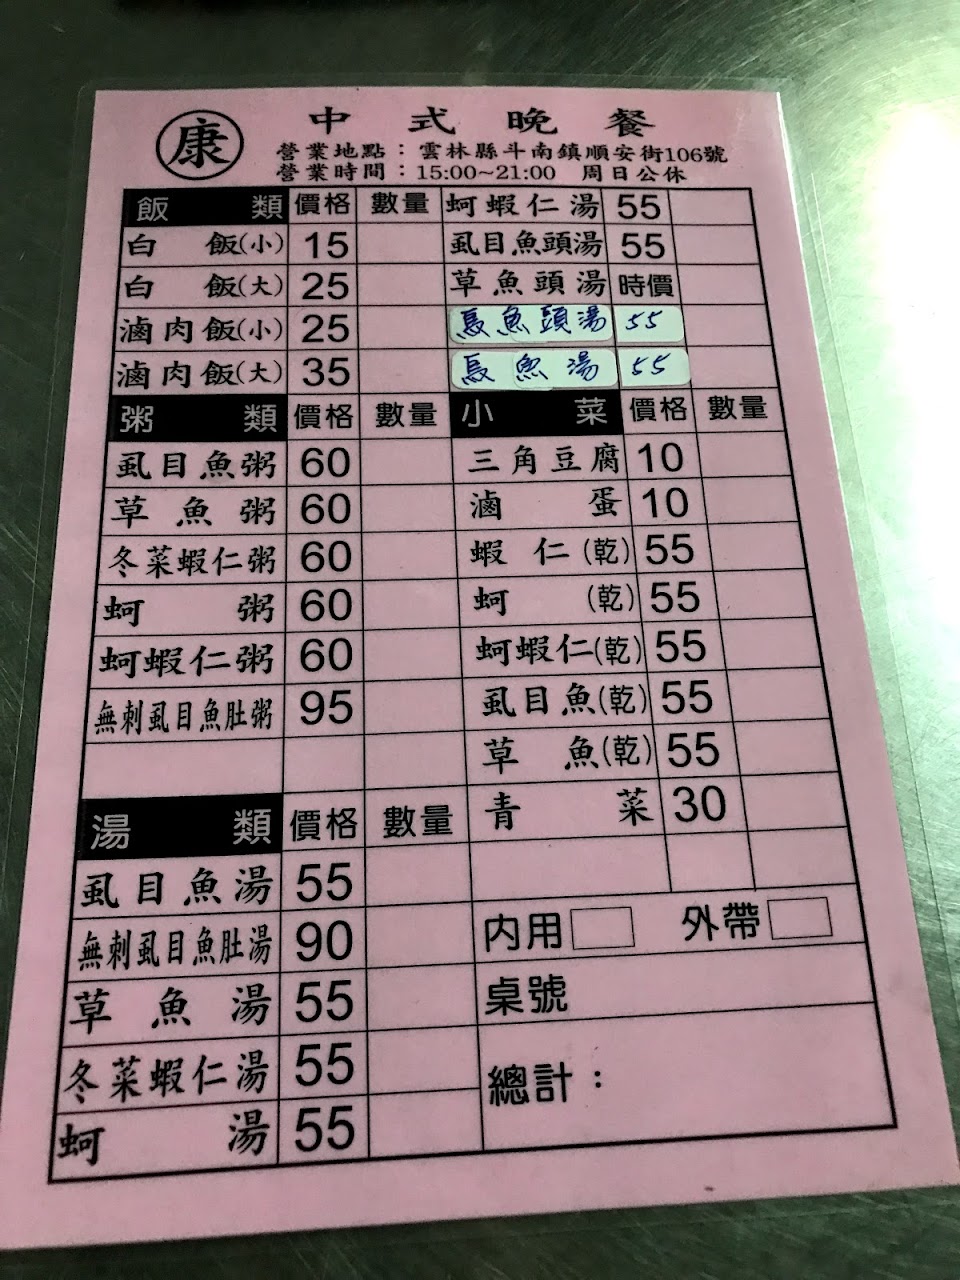 康
中式晚餐
營業地點：雲林縣斗南鎮順安街106號
營業時間：15:00~21:00 周日公休
飯類 價格 數量
白飯(小) 15
白飯(大) 25
滷肉飯(小) 25
滷肉飯(大) 35
粥類 價格 數量
虱目魚粥 60
草魚粥 60
冬菜蝦仁粥 60
蚵粥 60
蚵蝦仁粥 60
無刺虱目魚肚粥 95
湯類 價格 數量
虱目魚湯 55
無刺虱目魚肚湯 90
草魚湯 55
冬菜蝦仁湯 55
蚵湯 55
蚵蝦仁湯 55
虱目魚頭湯 55
草魚頭湯 時價
魚頭湯 55
魚湯 55
小菜 價格 數量
三角豆腐 10
滷蛋 10
蝦仁(乾) 55
蚵(乾) 55
蚵蝦仁(乾) 55
虱目魚(乾) 55
草魚(乾) 55
青菜 30
內用 外帶
桌號
總計：